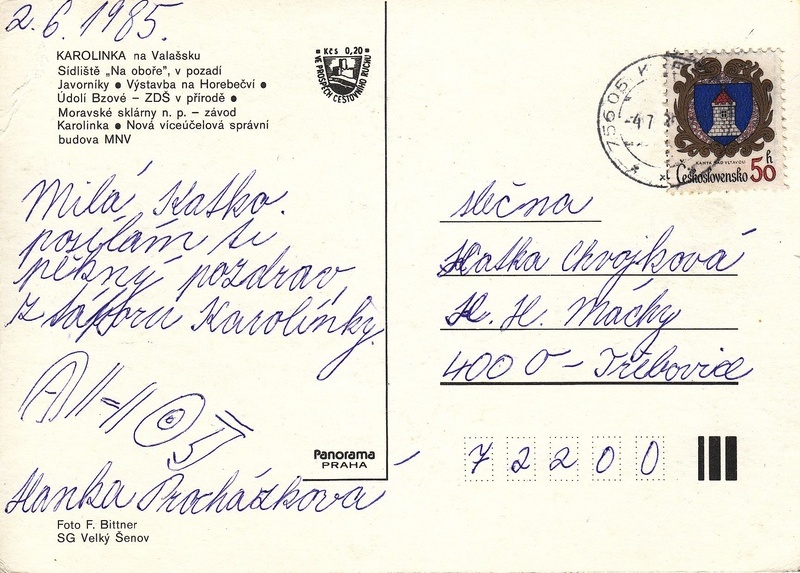 2.6.1985.
KAROLINKA na Valašsku
Sídliště „Na oboře", v pozadí
Javorníky ● Výstavba na Horebečví ●
Údolí Bzové – ZDŠ v přírodě ●
Moravské sklárny n. p. – závod
Karolinka ● Nová víceúčelová správní
budova MNV
Kčs 0,20
VE PROSPĚCH CESTOVNÍHO RUCHU
Milá Katko.
posílám ti
pěkný pozdrav
z táboru Karolínky.
Hanka Procházková
Foto F. Bittner
SG Velký Šenov
Panorama
PRAHA
75605
-4.7.
KAMÝK NAD VLTAVOU
Československo 50 h
slečna
Katka Chvojková
K. H. Máchy
400 O – Třebovice
72200